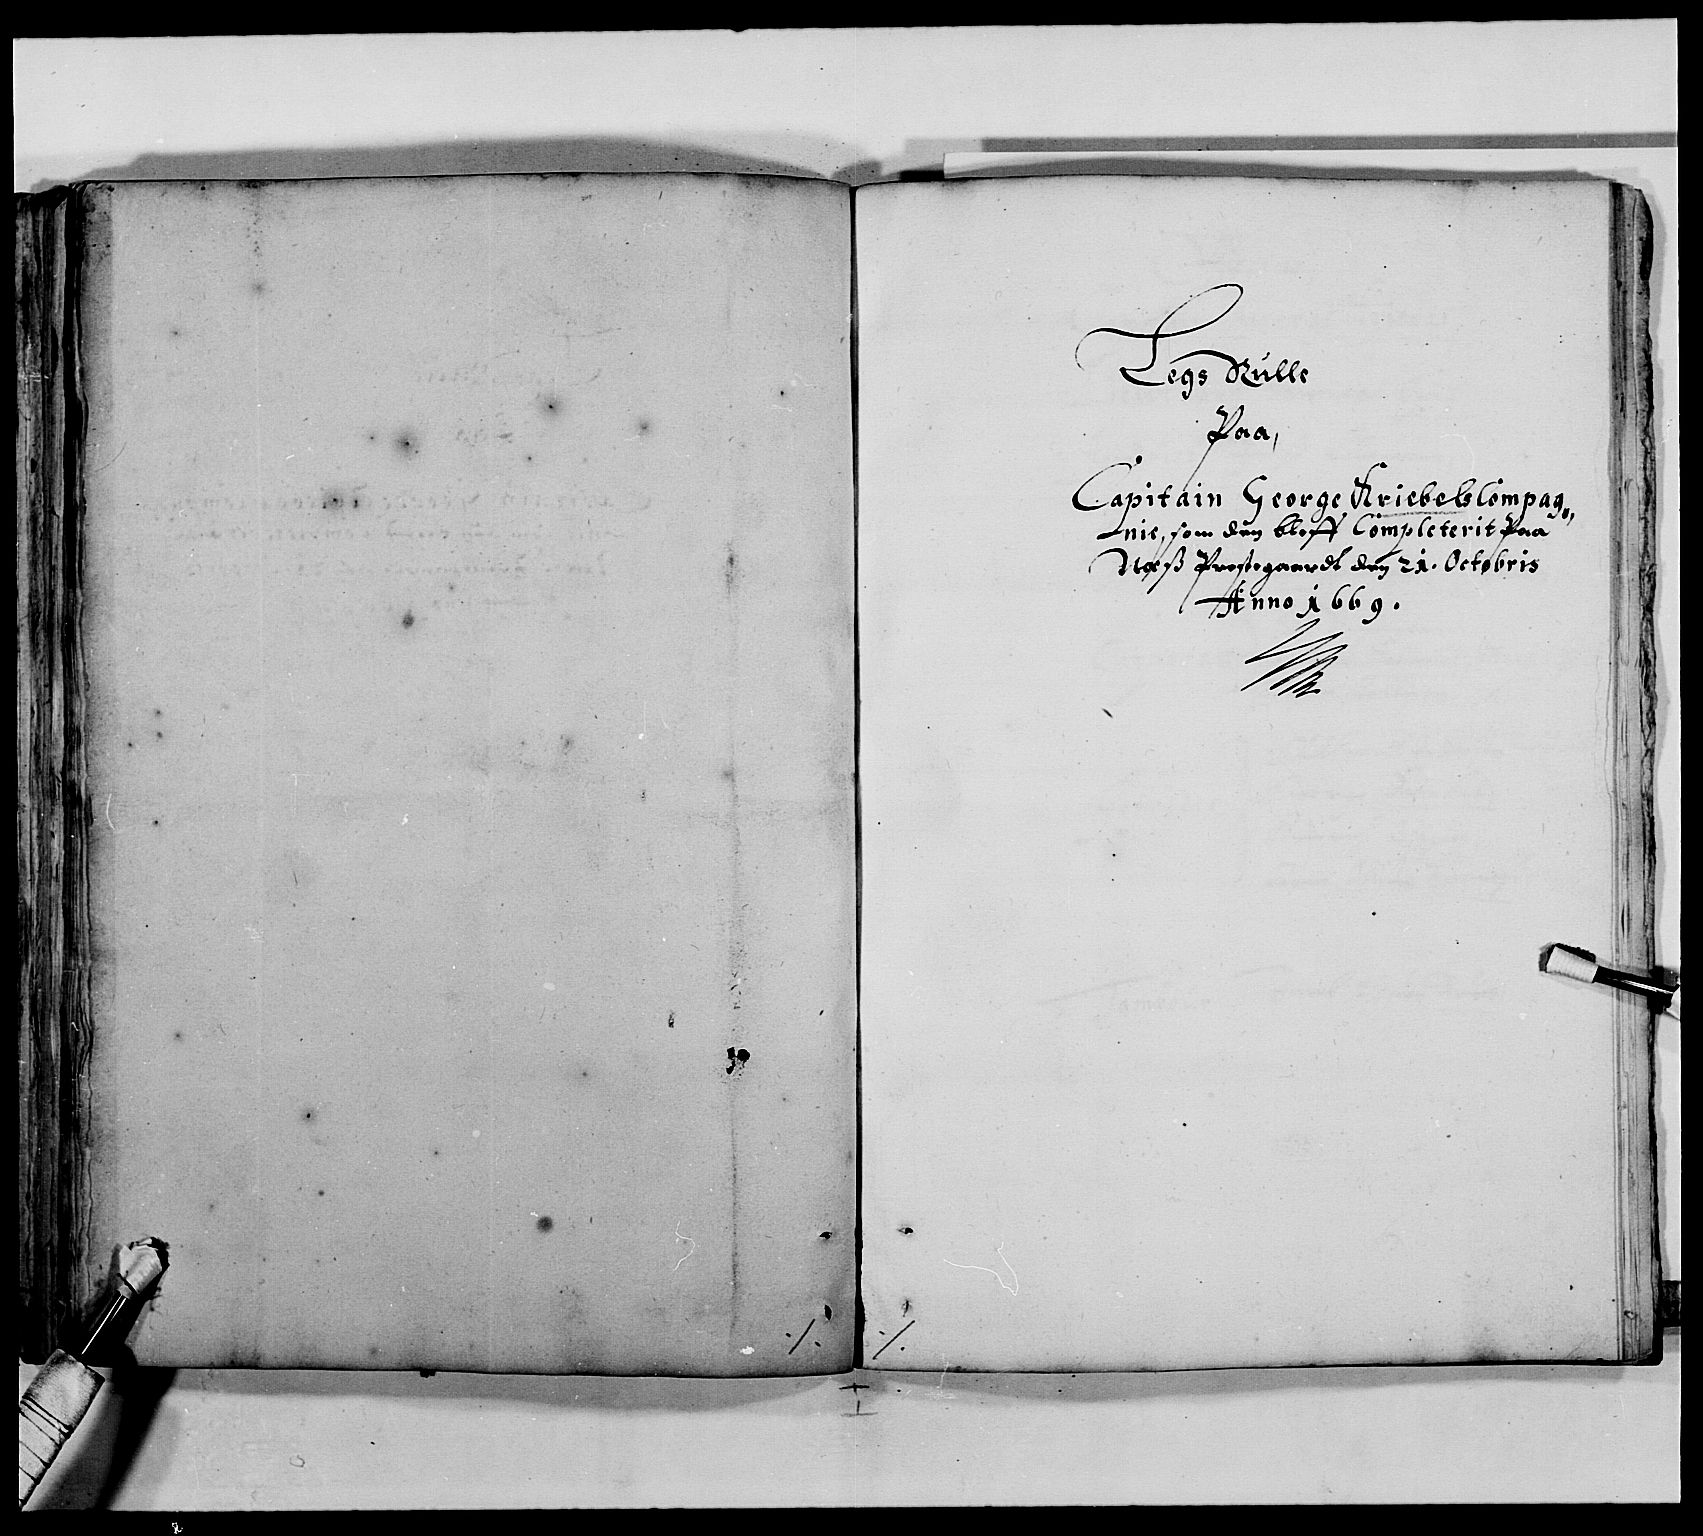 Legs Rulle
Paa,
Capitain George Kriebels Compag„
nie, som den bleff Completerit Paa
Næss Prestegaardt den 21. Octobris
Anno 1669.
./. ./.